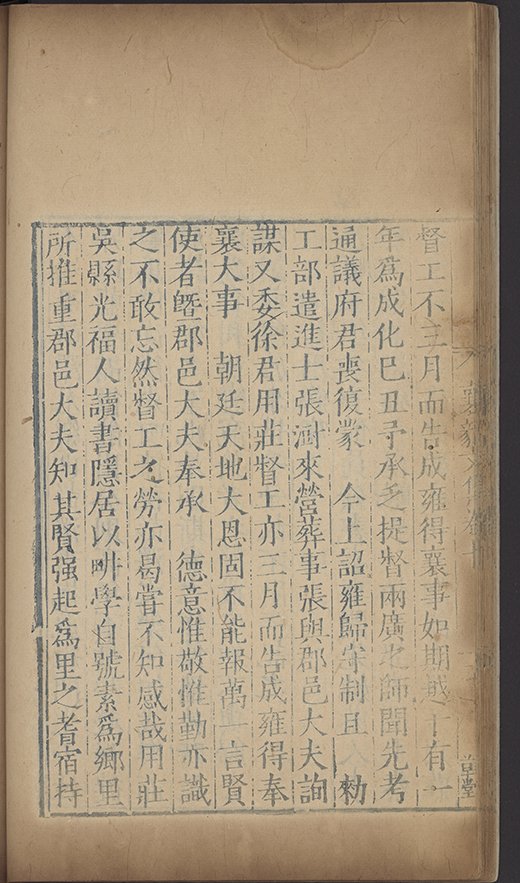 督工不三月而告成雍得襄事如期越十有一
年為成化巳丑予承乏提督兩廣之師聞先考
通議府君喪復蒙 今上詔雍歸守制且 勑
工部遣進士張澍來營葬事張與郡邑大夫詢
謀又委徐君用莊督工亦三月而告成雍得奉
襄大事 朝廷天地大恩固不能報萬一言賢
使者曁郡邑大夫奉承 德意惟敬惟勤亦識
之不敢忘然督工之勞亦曷嘗不知感哉用莊
吳縣光福人讀書隱居以畊學自號素為鄉里
所推重郡邑大夫知其賢强起為里之耆宿持